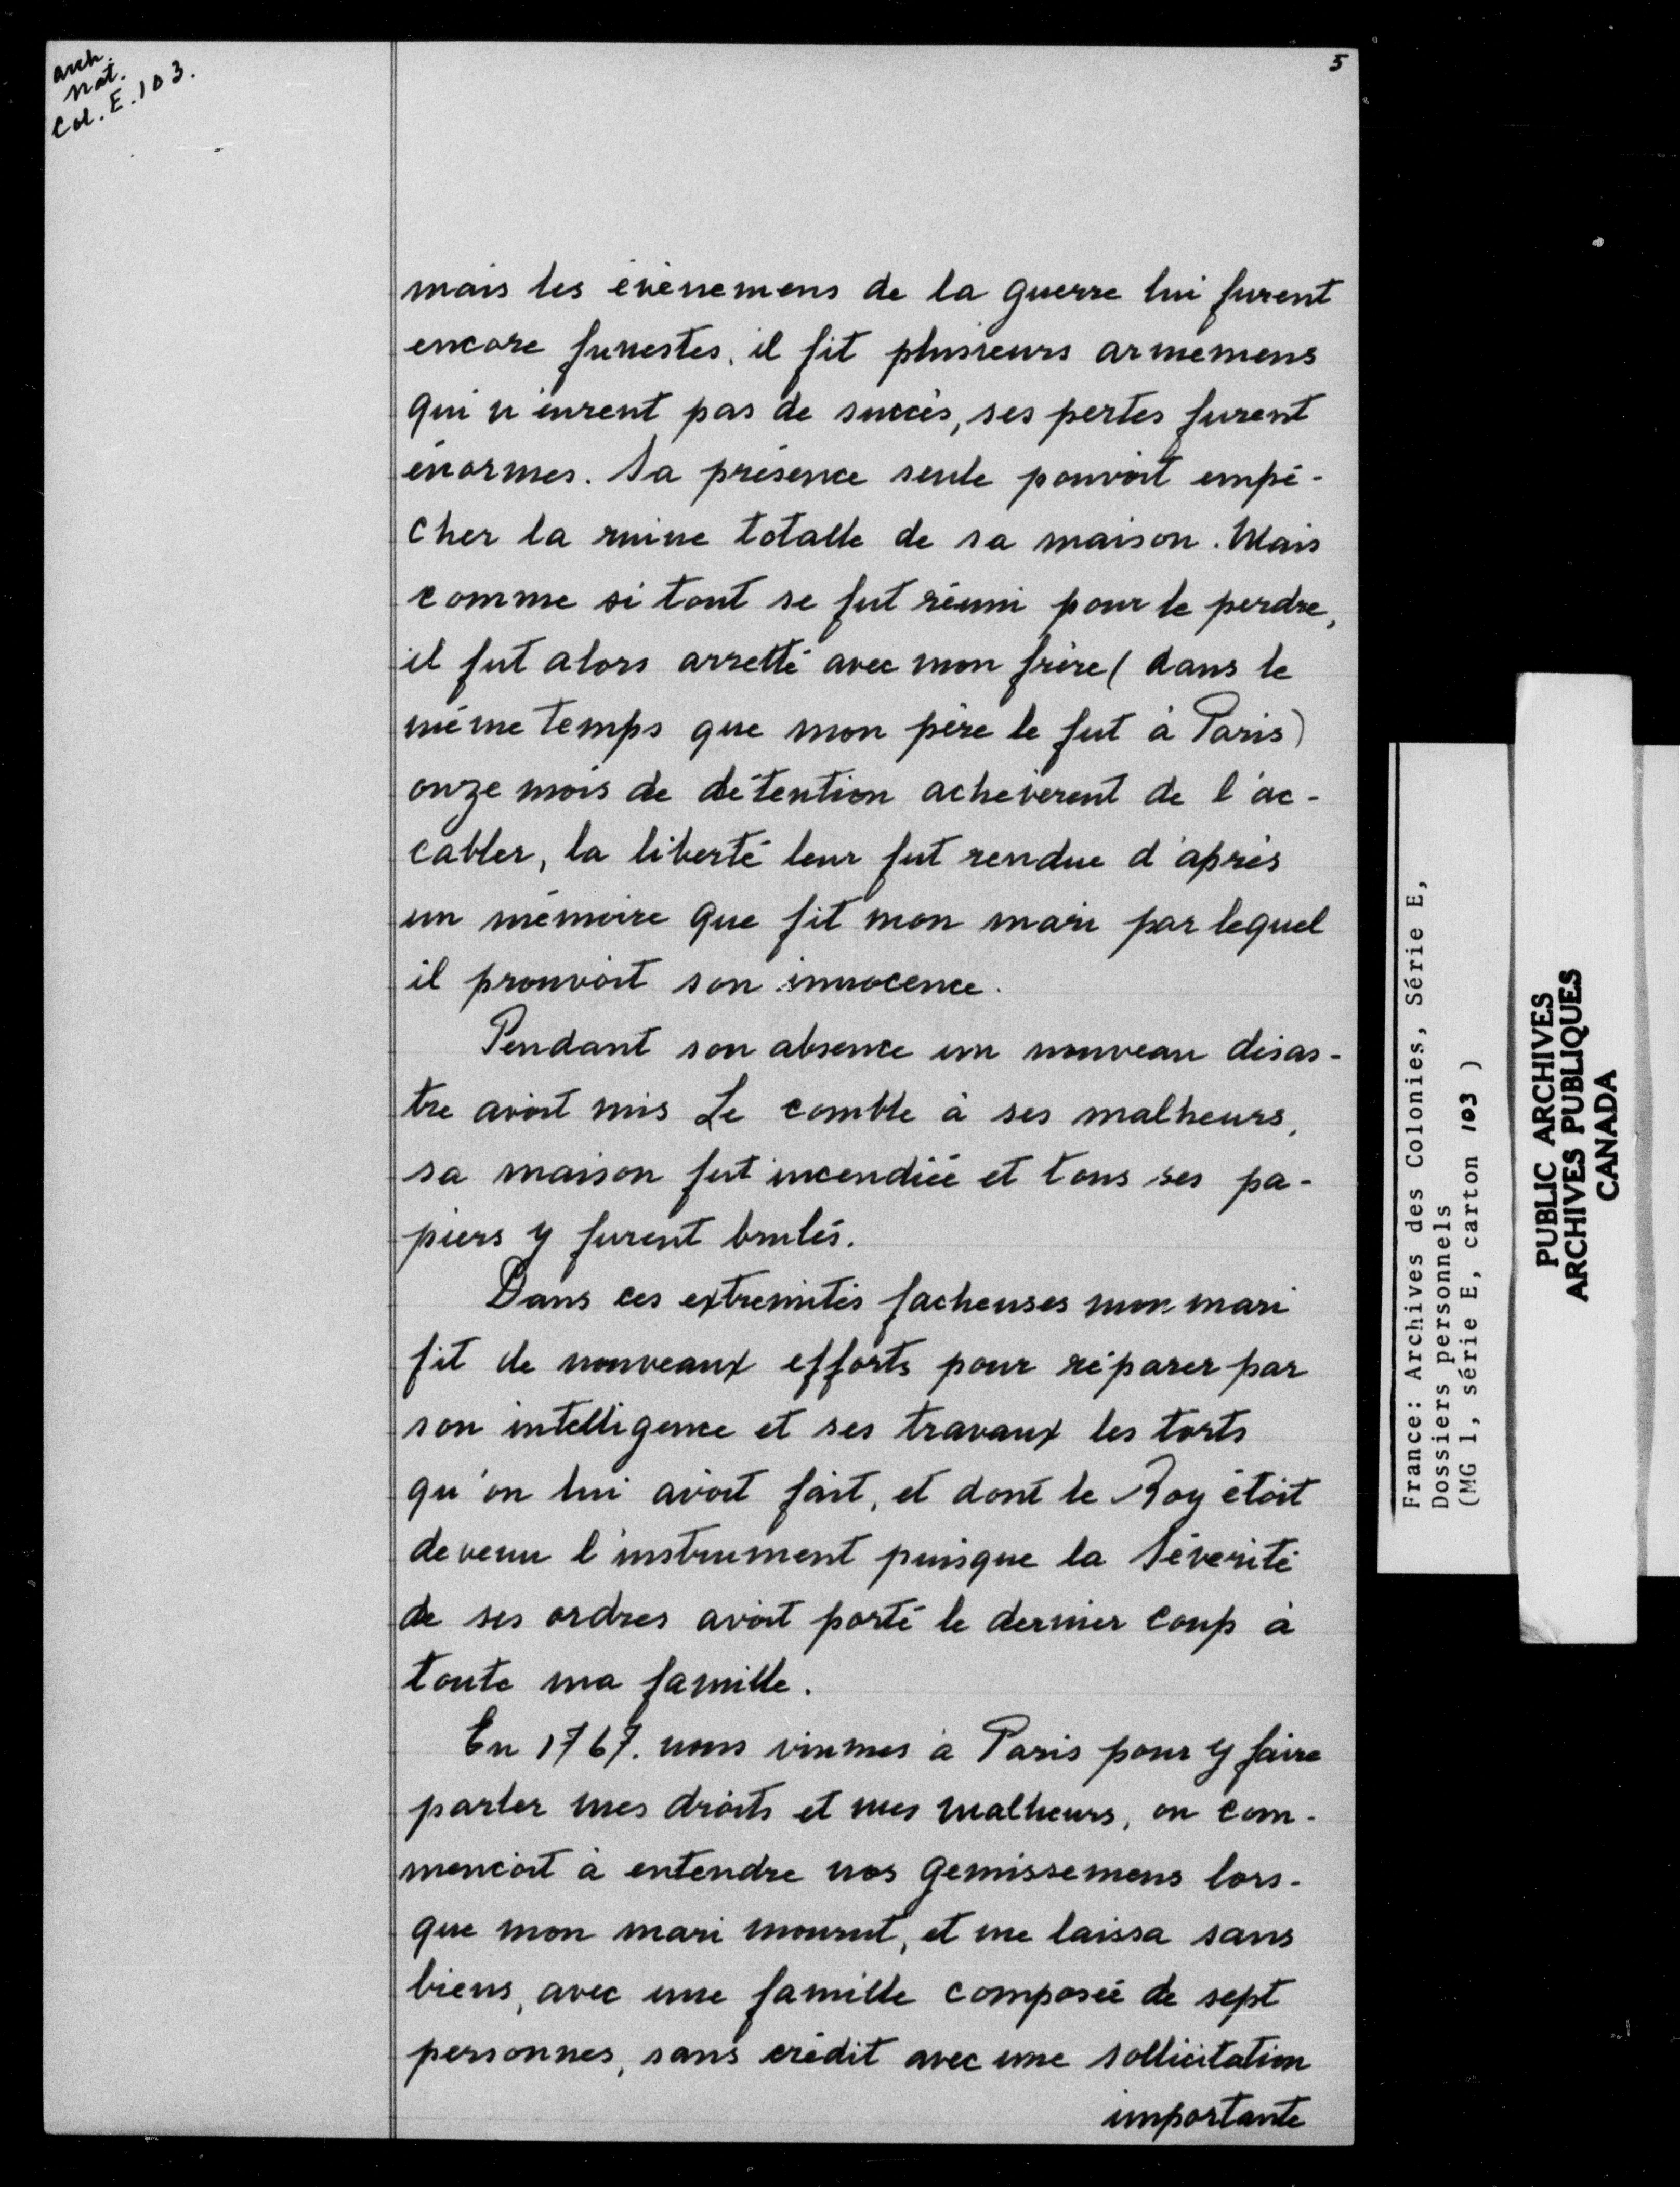 arch.
nat.
Col. E. 103.
5
mais les évènemens de la guerre lui furent
encore funestes. il fit plusieurs armemens
qui n'eurent pas de succès, ses pertes furent
énormes. Sa présence seule pouvoit empê-
cher la ruine totalle de sa maison. Mais
comme si tout se fut réuni pour le perdre,
il fut alors arretté avec mon frère ( dans le
même temps que mon père le fut à Paris )
onze mois de détention achevèrent de l'ac-
cabler, la liberté leur fut rendue d'après
un mémoire que fit mon mari par lequel
il prouvoit son innocence.
Pendant son absence un nouveau désas-
tre avoit mis Le comble à ses malheurs,
sa maison fut incendiée et tous ses pa-
piers y furent brulés.
Dans ces extremités facheuses mon mari
fit de nouveaux efforts pour réparer par
son intelligence et ses travaux les torts
qu'on lui avoit fait, et dont le Roy étoit
devenu l'instrument puisque la Séverité
de ses ordres avoit porté le dernier coup à
toute ma famille.
En 1767. nous vinmes à Paris pour y faire
parler mes droits et mes malheurs, on com-
mencoit à entendre nos gemissemens lors-
que mon mari mourut, et me laissa sans
biens, avec une famille composée de sept
personnes, sans crédit avec une sollicitation
importante
France: Archives des Colonies, Série E,
Dossiers personnels
(MG 1, série E, carton 103 )
PUBLIC ARCHIVES
ARCHIVES PUBLIQUES
CANADA